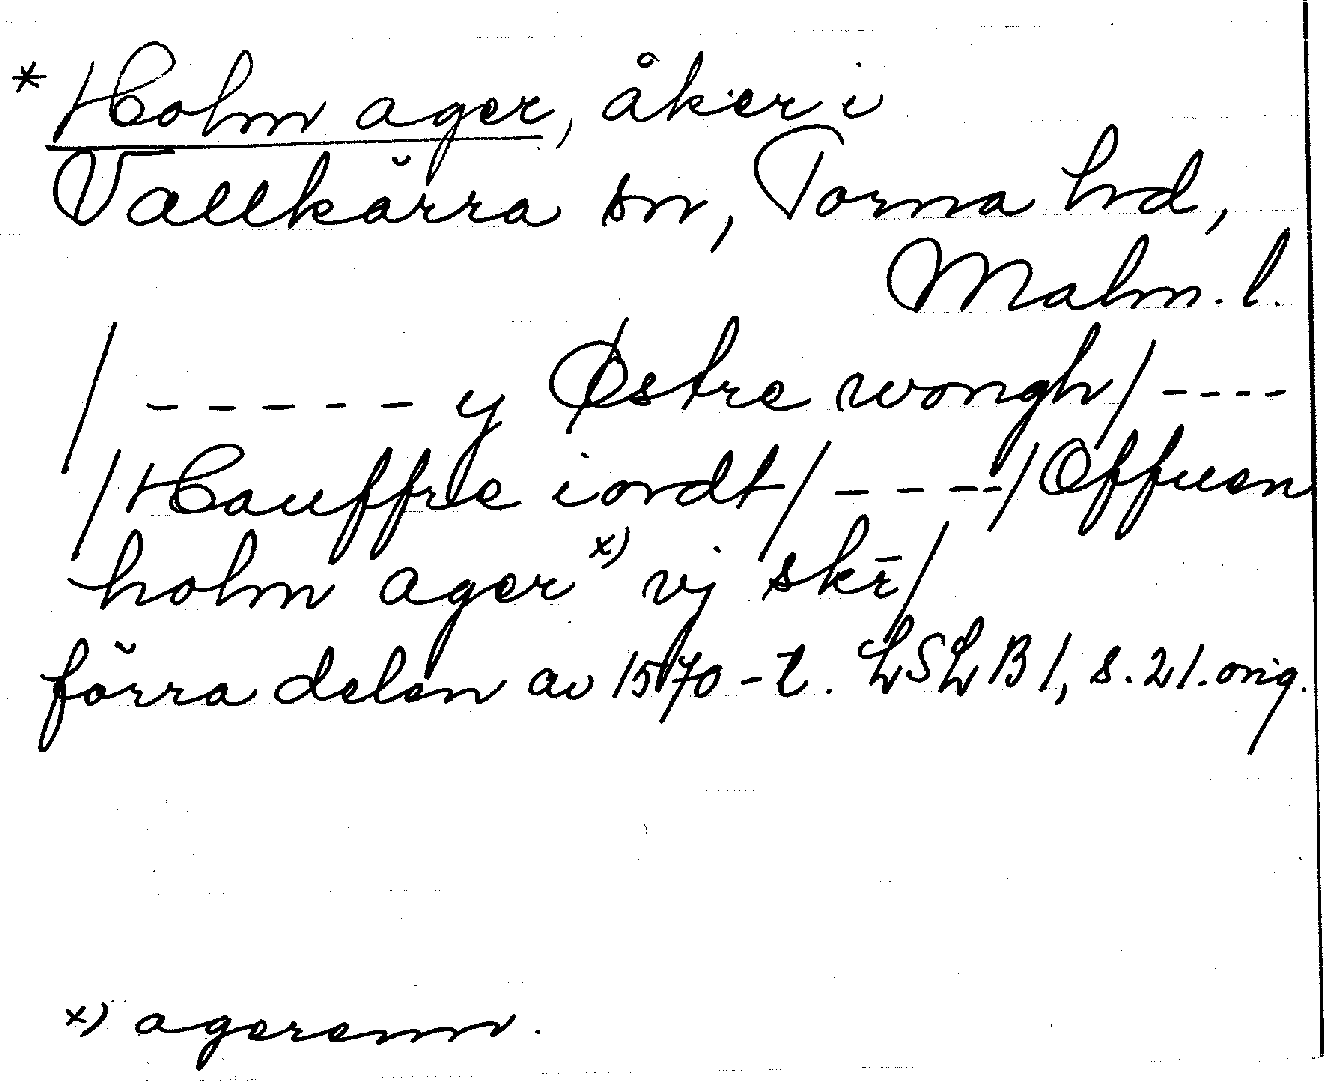 * Holm ager, åker i
Vallkärra sn, Torna hd,
Malm. l.
/ ----- y Østre wongh/ ----
/Hauffre iordt/ ----/Offuen
holm ager x) vj skr̄/
förra delen av 1570-t. LSLB 1, s. 21. orig.
x) agerenn.